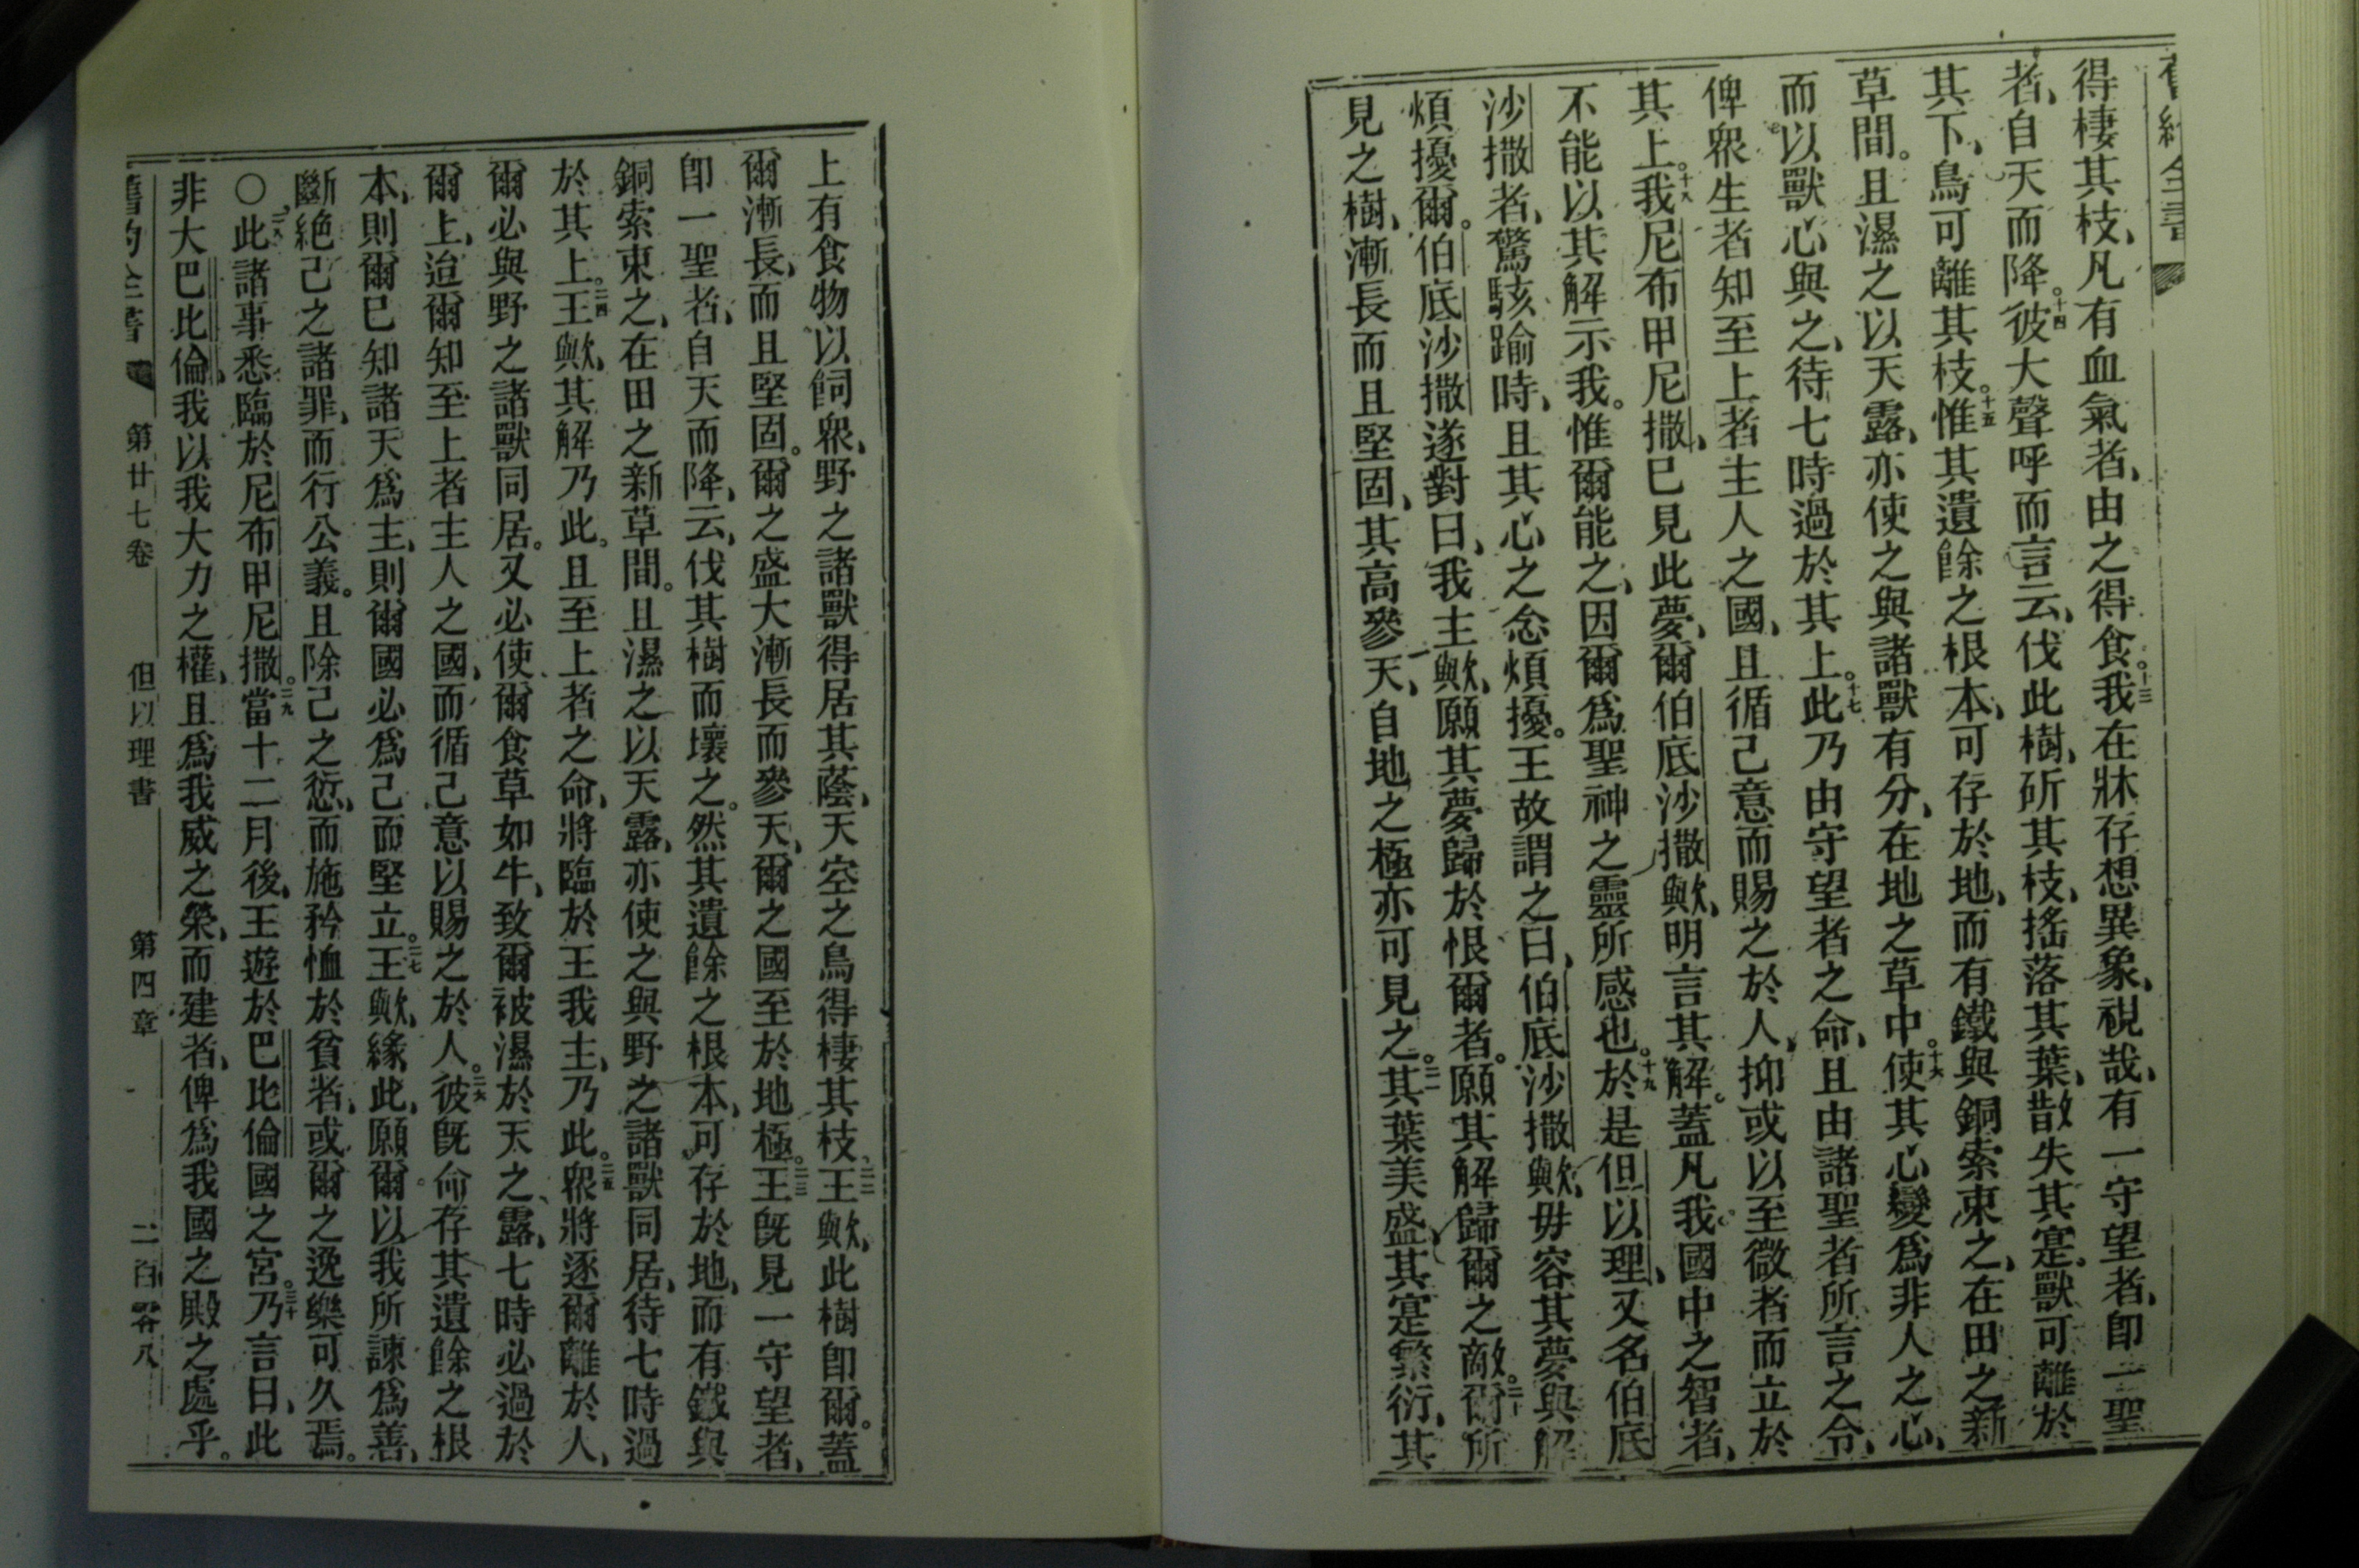 舊約全書
得棲其枝、凡有血氣者、由之得食。十三我在牀存想異象、視哉、有一守望者、卽一聖
者、自天而降。十四彼大聲呼而言云、伐此樹、斫其枝、搖落其葉、散失其寔。獸可離於
其下、鳥可離其枝。十五惟其遺餘之根本、可存於地、而有鐵與銅索束之、在田之新
草間。且濕之以天露、亦使之與諸獸有分、在地之草中。十六使其心變爲非人之心、
而以獸心與之、待七時過於其上。十七此乃由守望者之命、且由諸聖者所言之令、
俾衆生者知至上者主人之國、且循己意而賜之於人、抑或以至微者而立於
其上。十八我尼布甲尼撒、已見此夢、爾伯底沙撒歟、明言其解。蓋凡我國中之智者、
不能以其解示我。惟爾能之、因爾爲聖神之靈所感也。十九於是但以理、又名伯底
沙撒者、驚駭踰時、且其心之念煩擾。王故謂之曰、伯底沙撒歟、毋容其夢與解
煩擾爾。伯底沙撒遂對曰、我主歟、願其夢歸於恨爾者。願其解歸爾之敵。二十爾所
見之樹、漸長而且堅固、其高參天、自地之極亦可見之。二一其葉美盛、其寔繁衍、其
上有食物以飼衆、野之諸獸得居其蔭、天空之鳥得棲其枝、二二王歟、此樹卽爾。蓋
爾漸長、而且堅固。爾之盛大漸長而參天、爾之國至於地極。二三王旣見一守望者、
卽一聖者、自天而降、云、伐其樹而壞之。然其遺餘之根本、可存於地、而有鐵與
銅索束之、在田之新草間。且濕之以天露、亦使之與野之諸獸同居、待七時過
於其上。二四王歟、其解乃此。且至上者之命、將臨於王我主、乃此。二五衆將逐爾離於人、
爾必與野之諸獸同居。又必使爾食草如牛、致爾被濕於天之露、七時必過於
爾上、迨爾知至上者主人之國、而循己意以賜之於人。二六彼旣命存其遺餘之根
本、則爾已知諸天爲主、則爾國必爲己而堅立。二七王歟、緣此、願爾以我所諫爲善、
斷絕己之諸罪、而行公義。且除己之愆、而施矜恤於貧者、或爾之逸樂可久焉。
〇二八此諸事悉臨於尼布甲尼撒。二九當十二月後、王遊於巴比倫國之宮。三十乃言曰、此
非大巴比倫、我以我大力之權、且爲我威之榮、而建者、俾爲我國之殿之處乎。
舊約全書 第廿七卷 但以理書 第四章 二百零八